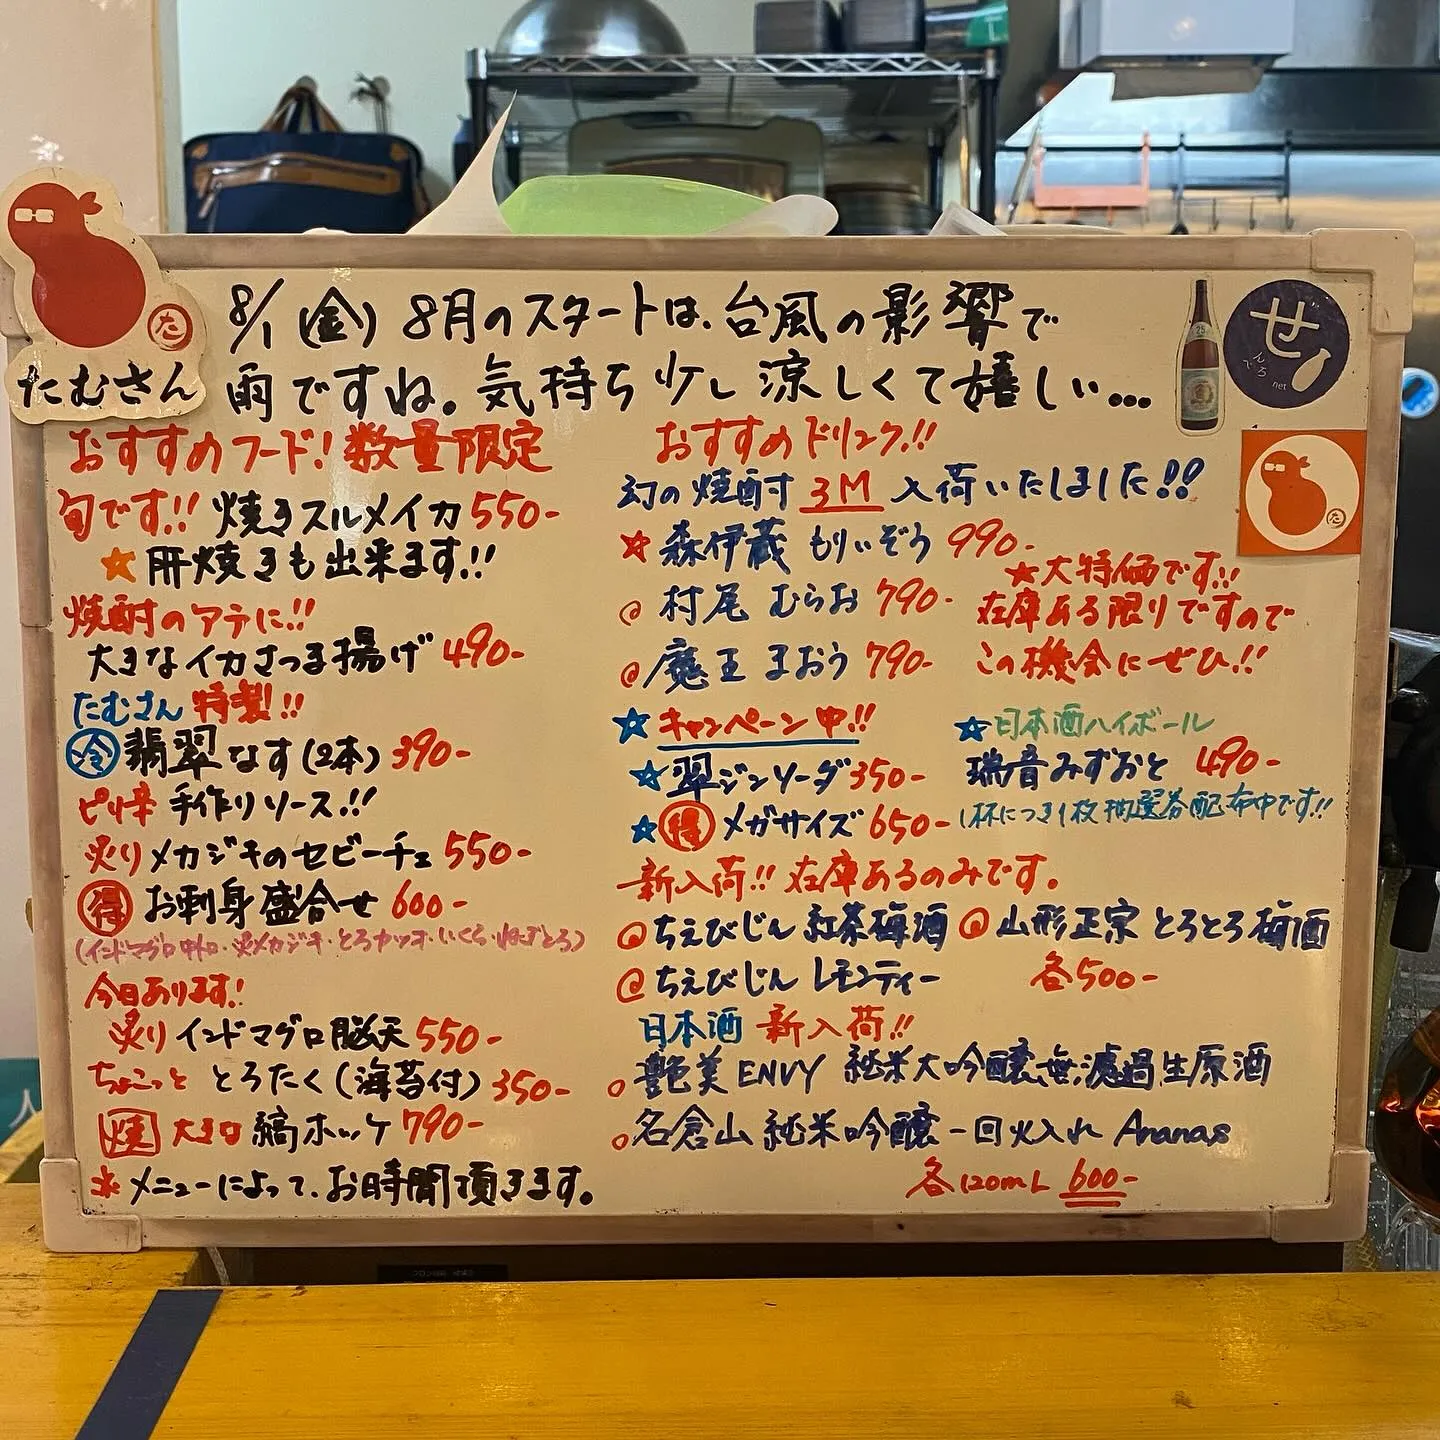 8/1(金) 8月のスタートは、台風の影響で
雨ですね。気持ち少し涼しくて嬉しい…
たむさん
た
せ
んべろ
net
おすすめフード!数量限定
旬です!!焼きスルメイカ550-
☆肝焼きも出来ます!!
焼酎のアテに!!
大きなイカさつま揚げ490-
たむさん特製!!
冷 翡翠なす(2本)390-
ピリ辛 手作りソース!!
炙りメカジキのセビーチェ550-
得 お刺身盛合せ600-
(インドマグロ中トロ・炙メカジキ・とろカツオ・いくら・ねぎとろ)
今日あります!
炙りインドマグロ脳天550-
ちょこっと とろたく(海苔付)350-
焼 大きな縞ホッケ790-
※メニューによって、お時間頂きます。
おすすめドリンク!!
幻の焼酎 3M 入荷いたしました!!
☆森伊蔵 もりいぞう 990-
@村尾 むらお 790-
@魔王 まおう 790-
☆大特価です!!
在庫ある限りですので
この機会にぜひ!!
☆キャンペーン中!!
☆翠ジンソーダ350-
☆得 メガサイズ650-
☆日本酒ハイボール
瑞音みずおと 490-
1杯につき1枚抽選券配布中です!!
新入荷!!在庫あるのみです。
@ちえびじん 紅茶梅酒 @山形正宗 とろとろ梅酒
@ちえびじん レモンティー 各500-
日本酒 新入荷!!
○艶美 ENVY 純米大吟醸無濾過生原酒
○名倉山 純米吟醸 一回火入れ Ananas
各120mL 600-